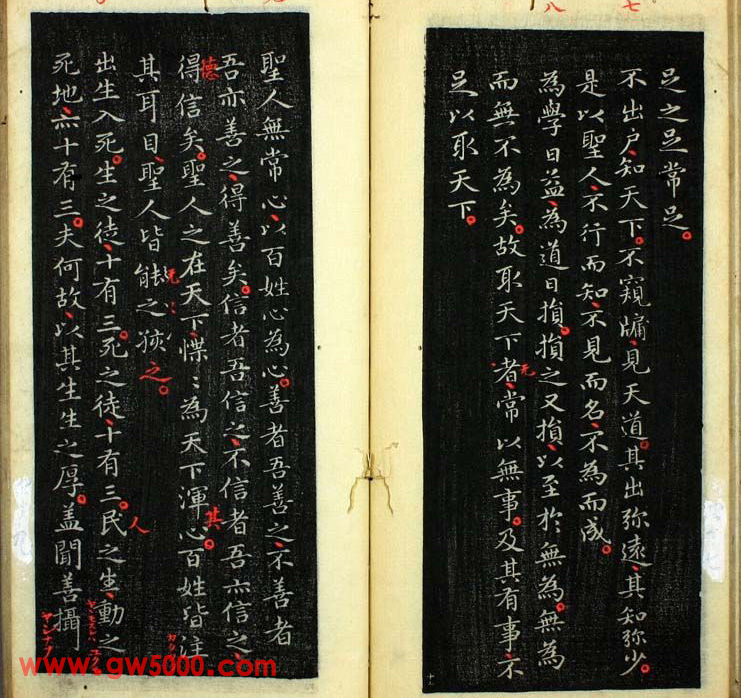 足之足常足。
不出户、知天下。不窺牖、見天道。其出弥遠、其知弥少。
是以聖人、不行而知、不見而名、不為而成。
為學日益、為道日損。損之又損、以至於無為。無為
而無不為矣。故取天下者、常以無事。及其有事、不
足以取天下。
聖人無常心、以百姓心為心。善者吾善之、不善者
吾亦善之、得善矣。信者吾信之、不信者吾亦信之、
得信矣。聖人之在天下、惵〻為天下渾心。百姓皆注
其耳目、聖人皆能之孩之。
出生入死。生之徒、十有三。死之徒、十有三。民之生、動之
死地、亦十有三。夫何故、以其生生之厚。盖聞善攝
七
八
无
德
其
人
www.gw5000.com